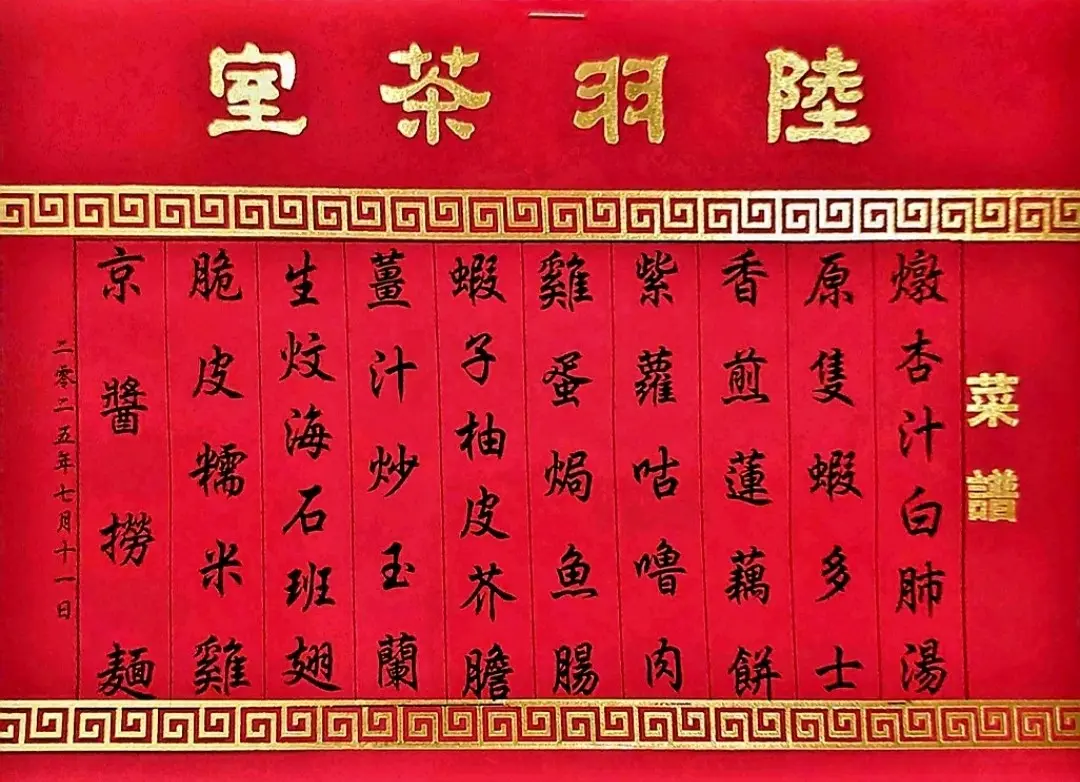 陸羽茶室
菜譜
燉杏汁白肺湯
原隻蝦多士
香煎蓮藕餅
紫蘿咕嚕肉
雞蛋焗魚腸
蝦子柚皮芥膽
薑汁炒玉蘭
生炆海石班翅
脆皮糯米雞
京醬撈麵
二零二五年七月十一日